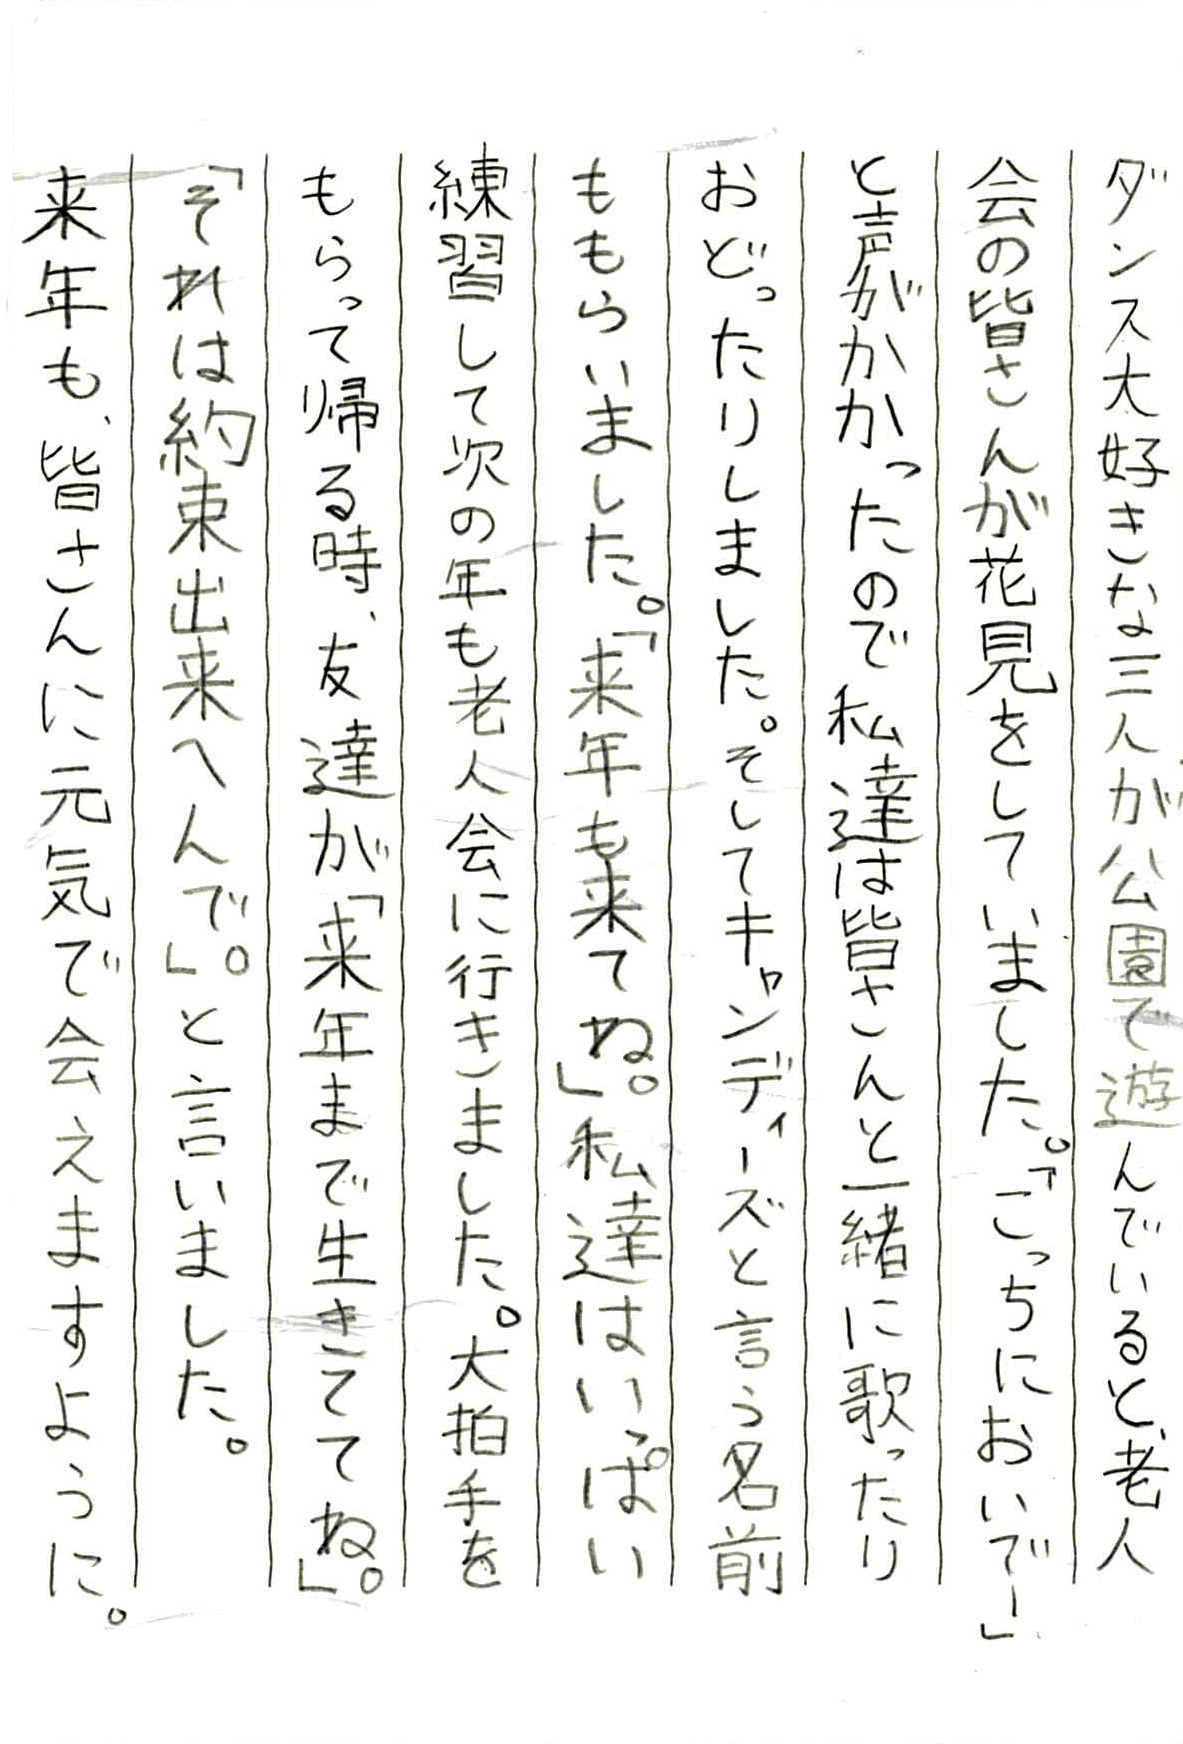 ダンス大好きな三人が公園で遊んでいると、老人
会の皆さんが花見をしていました。「こっちにおいでー」
と声がかかったので私達は皆さんと一緒に歌ったり
おどったりしました。そしてキャンディーズと言う名前
ももらいました。「来年も来てね。」私達はいっぱい
練習して次の年も老人会に行きました。大拍手を
もらって帰る時、友達が「来年まで生きててね。」
「それは約束出来へんで。」と言いました。
来年も、皆さんに元気で会えますように。